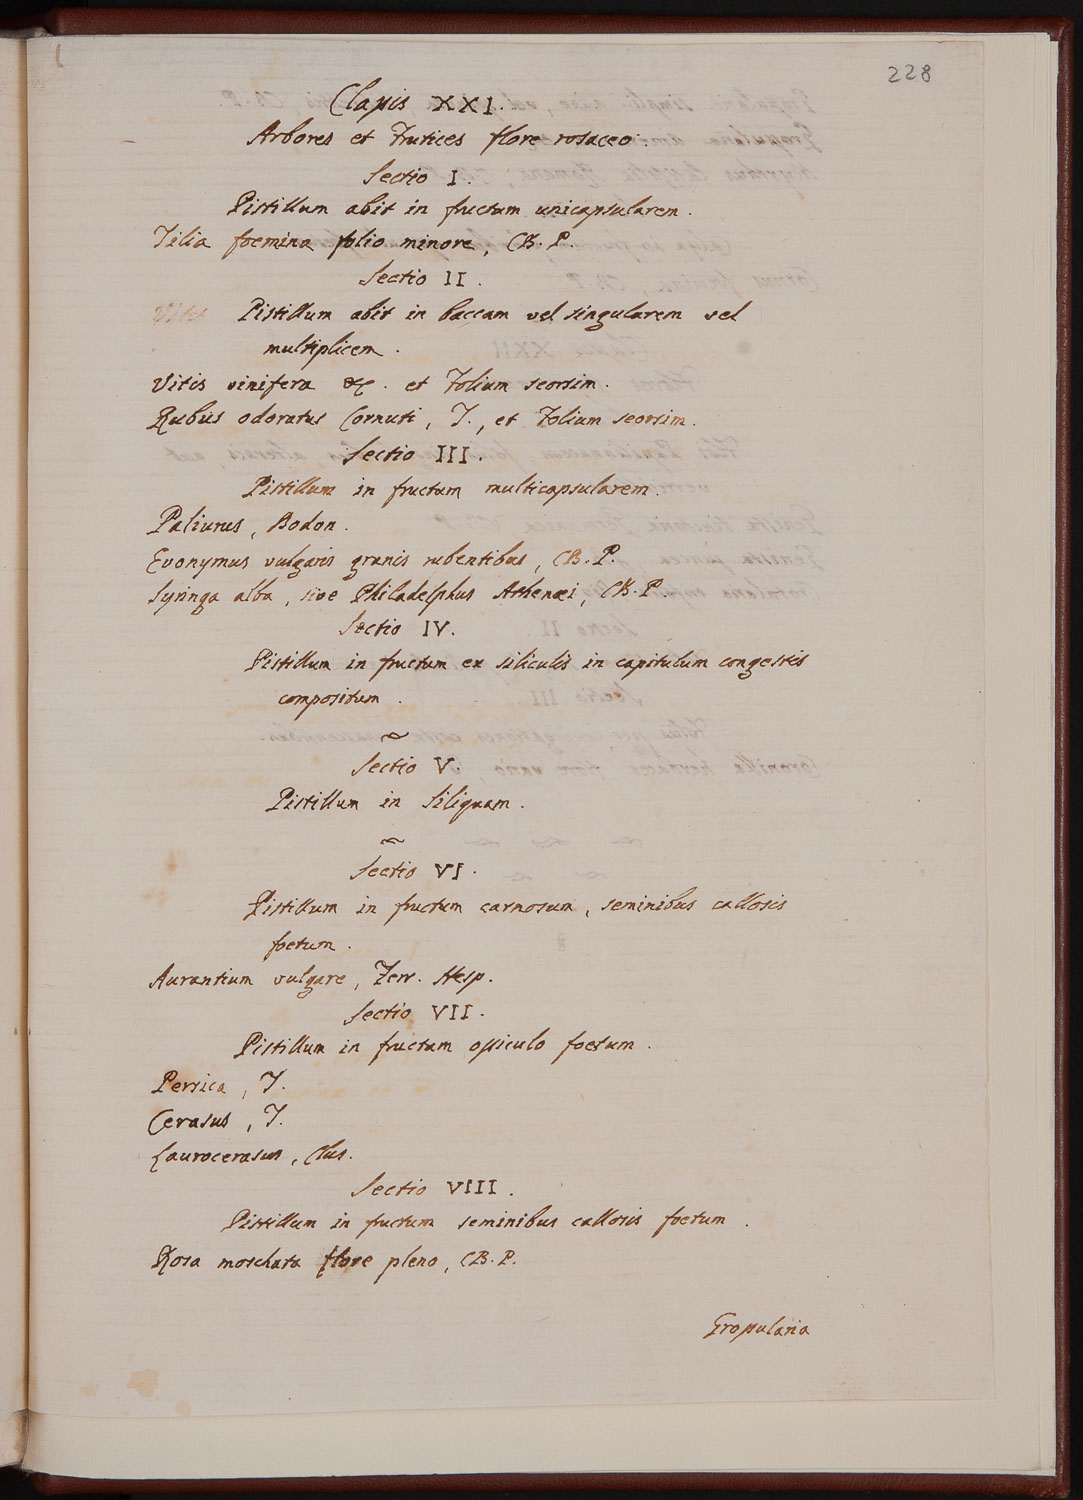 228
Classis XXI.
Arbores et Frutices flore rosaceo.
Sectio I.
Pistillum abit in fructum unicapsularem.
Tilia foemina folio minore, CB. P.
Sectio II.
Vitis Pistillum abit in baccam vel singularem vel
multiplicem.
Vitis vinifera &c. et Folium seorsim.
Rubus odoratus Cornuti, T., et Folium seorsim.
Sectio III.
Pistillum in fructum multicapsularem.
Paliurus, Dodon.
Evonymus vulgaris granis rubentibus, CB. P.
Syringa alba, sive Philadelphus Athenaei, CB. P.
Sectio IV.
Pistillum in fructum ex siliculis in capitulum congestis
compositum.
~
Sectio V.
Pistillum in Siliquam.
~
Sectio VI.
Pistillum in fructum carnosum, seminibus callosis
foetum.
Aurantium vulgare, Ferr. Hesp.
Sectio VII.
Pistillum in fructum ossiculo foetum.
Persica, T.
Cerasus, T.
Laurocerasus, Clus.
Sectio VIII.
Pistillum in fructum seminibus callosis foetum.
Rosa moschata flore pleno, CB. P.
Grossularia